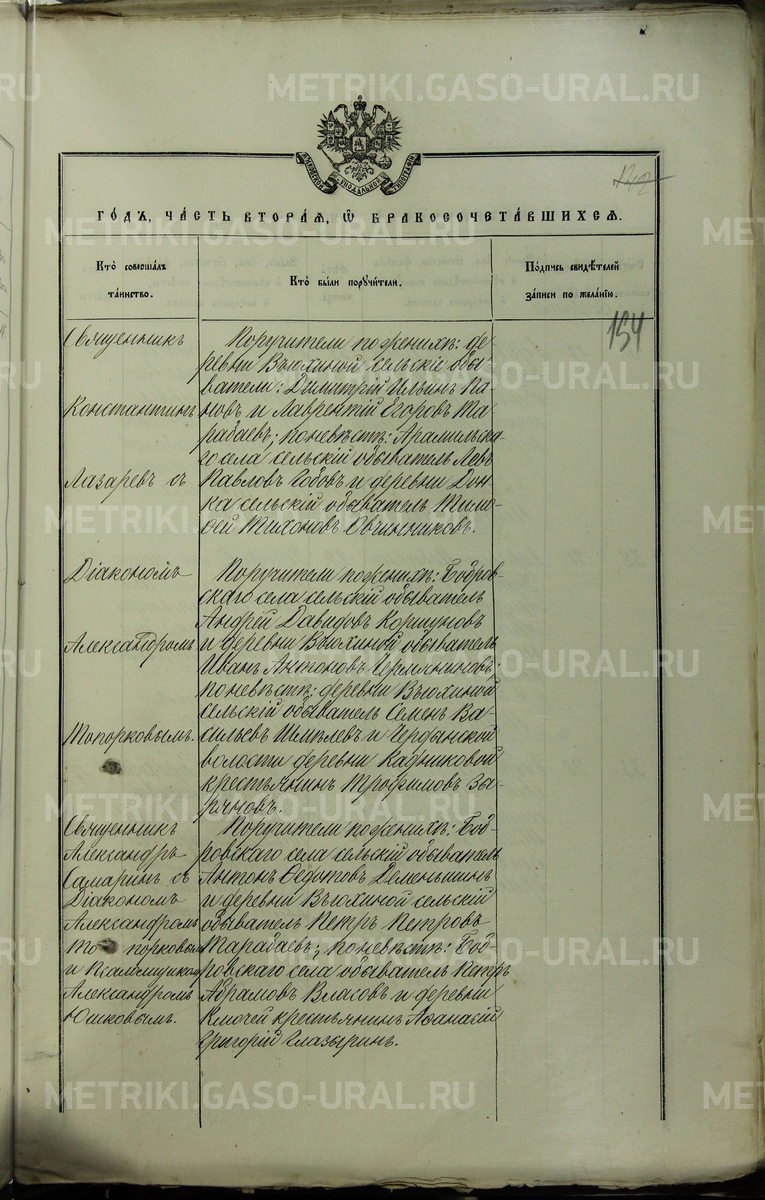 METRIKI.GASO-URAL.RU
МОСКОВСКОЙ СѴНОДАЛЬНОЙ ТИПОГРАФІИ
ГО́ДЪ, ЧА́СТЬ ВТОРА́Я, Ѡ БРАКОСОЧЕТА́ВШИХСЯ.
Кто̀ совершалъ
та́инство.
Кто̀ бы́ли порꙋчи́тели.
По́дпись свидѣ́телей
за́писи по жела́нїю.
154
Священникъ
Константинъ
Лазаревъ съ
Діакономъ
Александромъ
Топорковымъ.
Поручители по женихѣ: де-
ревни Вьюхиной сельскіе обы-
ватели: Димитрій Ильинъ Па-
новъ и Лаврентій Егоровъ Та-
рабаевъ; по невѣстѣ: Арамильска-
го села сельскій обыватель Левъ
Павловъ и деревни
ка сельскій обыватель Тимо-
фей Тихоновъ Овчинниковъ.
Поручители по женихѣ: Бобров-
скаго села сельскій обыватель
Андрей Давидовъ Коршуновъ
и деревни Вьюхиной обыватель
Иванъ Антоновъ Чермяниновъ;
по невѣстѣ: деревни Вьюхиной
сельскій обыватель Семенъ Ва-
сильевъ и Чердынской
волости деревни Кадниковой
крестьянинъ Трофимовъ Зы-
ряновъ.
Священникъ
Александръ
Самаринъ съ
Діакономъ
Александромъ
Топорковымъ
и Псаломщикомъ
Александромъ
Юшковымъ.
Поручители по женихѣ: Боб-
ровскаго села сельскій обыватель
Антонъ Федотовъ Деменьшинъ
и деревни Вьюхиной сельскій
обыватель Петръ Петровъ
Тарабаевъ; по невѣстѣ: Боб-
ровскаго села обыватель Петръ
Абрамовъ Власовъ и деревни
Ключей крестьянинъ Афанасій
Григорій Глазыринъ.